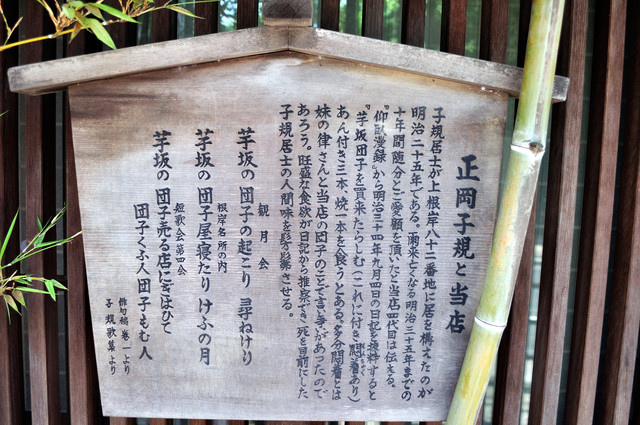 正岡子規と当店
子規居士が上根岸八十二番地に居を構えたのが
明治二十五年である。雨来亡くなる明治三十五年までの
十年間随分とご愛顧を頂いたと当店四代目は伝える。
"仰臥漫録"から明治三十四年九月四日の日記を抜粋すると
"芋坂団子を買来たらしむ(これに付き悶着あり)
あん付き三本、焼一本を食う"とある。多分悶着とは
妹の律さんと当店の団子のことで言い争があったので
あろう。旺盛な食欲が日記から推察でき、死を目前にした
子規居士の人間味を彷彿させる。
観月会
芋坂の団子の起こり尋ねけり
根岸名所の内
芋坂の団子屋寝たりけふの月
短歌会第四会
芋坂の団子売る店にぎはひて
団子くふ人団子もむ人
俳句稿巻一より
子規歌集より